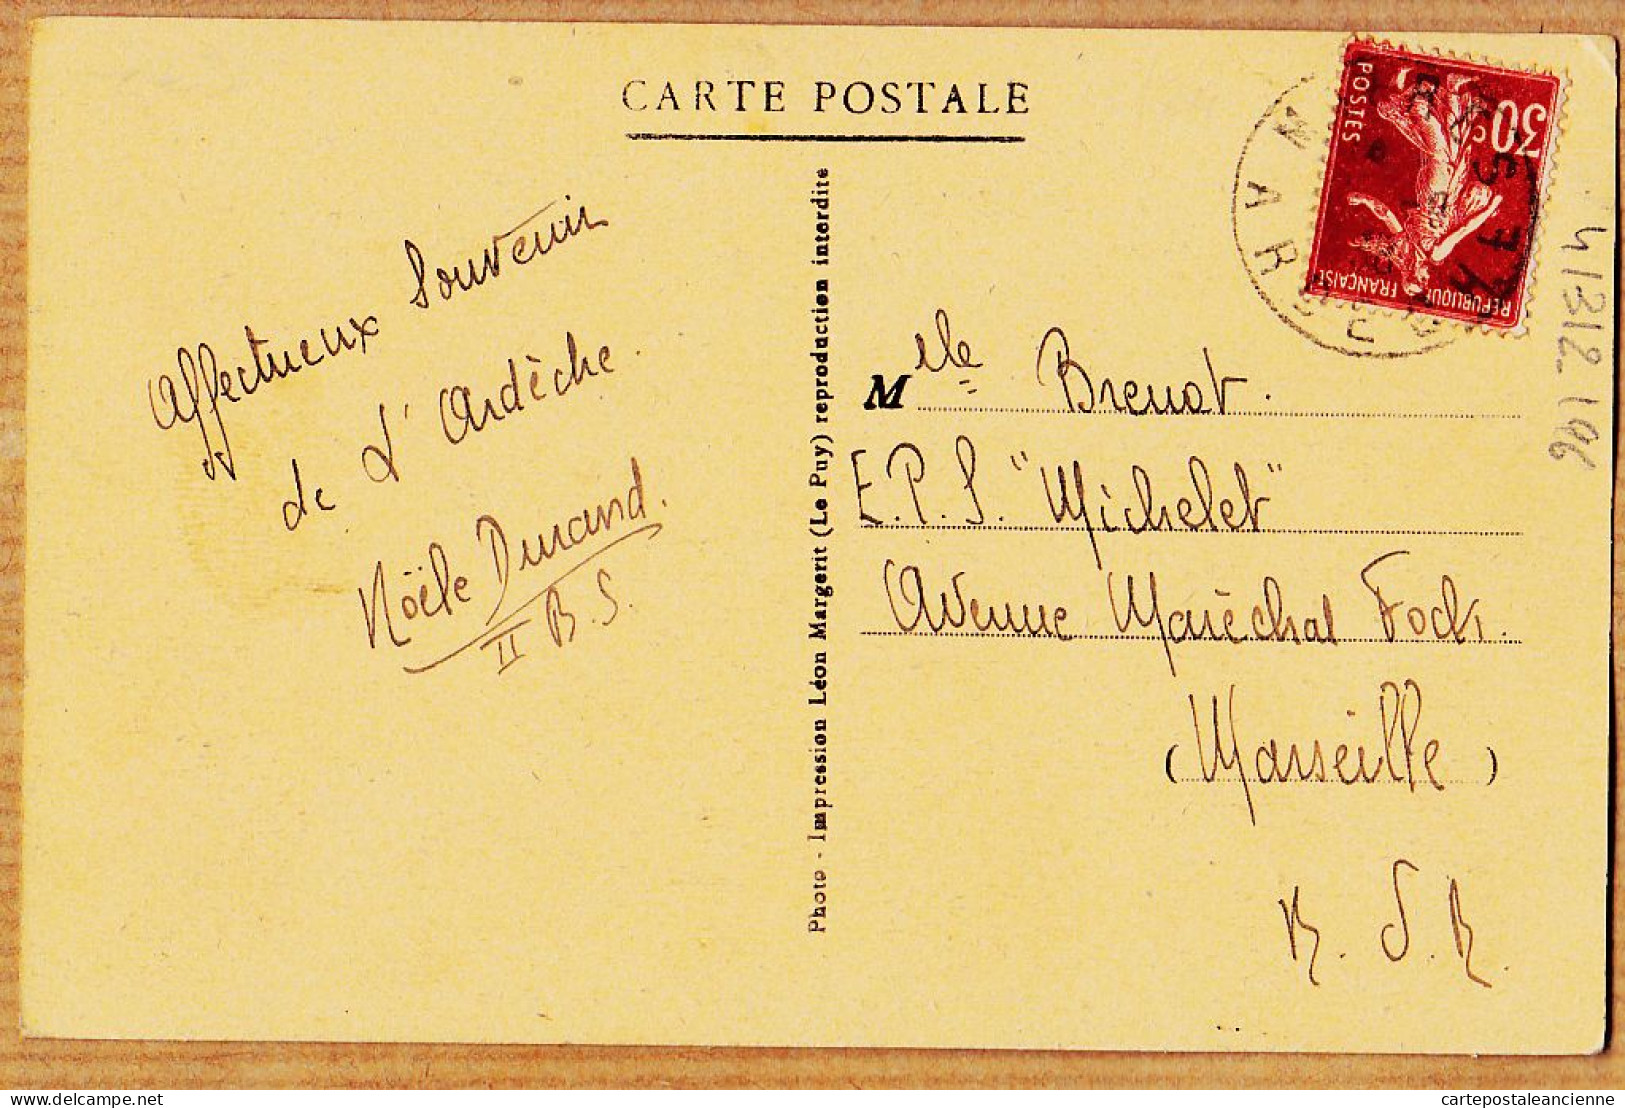 CARTE POSTALE
Affectueux Souvenir
de L'Ardèche.
Nöële Durand.
II B.S.
Photo - Impression Léon Margerit (Le Puy) reproduction interdite
30c
POSTES
REPUBLIQUE FRANÇAISE
Mlle Brenot.
E.P.S. "Michelet"
Avenue Maréchal Foch.
(Marseille)
B.d.R.
delcampe.net
cartepostaleancienne